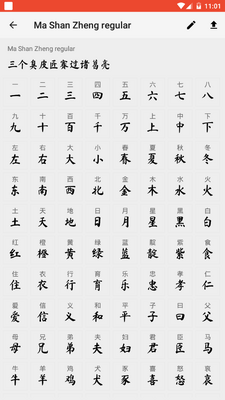 11:01
Ma Shan Zheng regular
Ma Shan Zheng regular
三个臭皮匠赛过诸葛亮
一 二 三 四 五 六 七 八
一 二 三 四 五 六 七 八
九 十 百 千 万 上 中 下
九 十 百 千 万 上 中 下
左 右 大 小 春 夏 秋 冬
左 右 大 小 春 夏 秋 冬
东 南 西 北 金 木 水 火
东 南 西 北 金 木 水 火
土 天 地 日 月 星 黑 白
土 天 地 日 月 星 黑 白
红 橙 黄 绿 蓝 靛 紫 食
红 橙 黄 绿 蓝 靛 紫 食
住 农 行 育 乐 忠 孝 仁
住 农 行 育 乐 忠 孝 仁
爱 信 义 和 平 子 曰 父
爱 信 义 和 平 子 曰 父
母 兄 弟 夫 妇 君 臣 马
母 兄 弟 夫 妇 君 臣 马
牛 羊 鸡 犬 家 喜 怒 哀
牛 羊 鸡 犬 家 喜 怒 哀